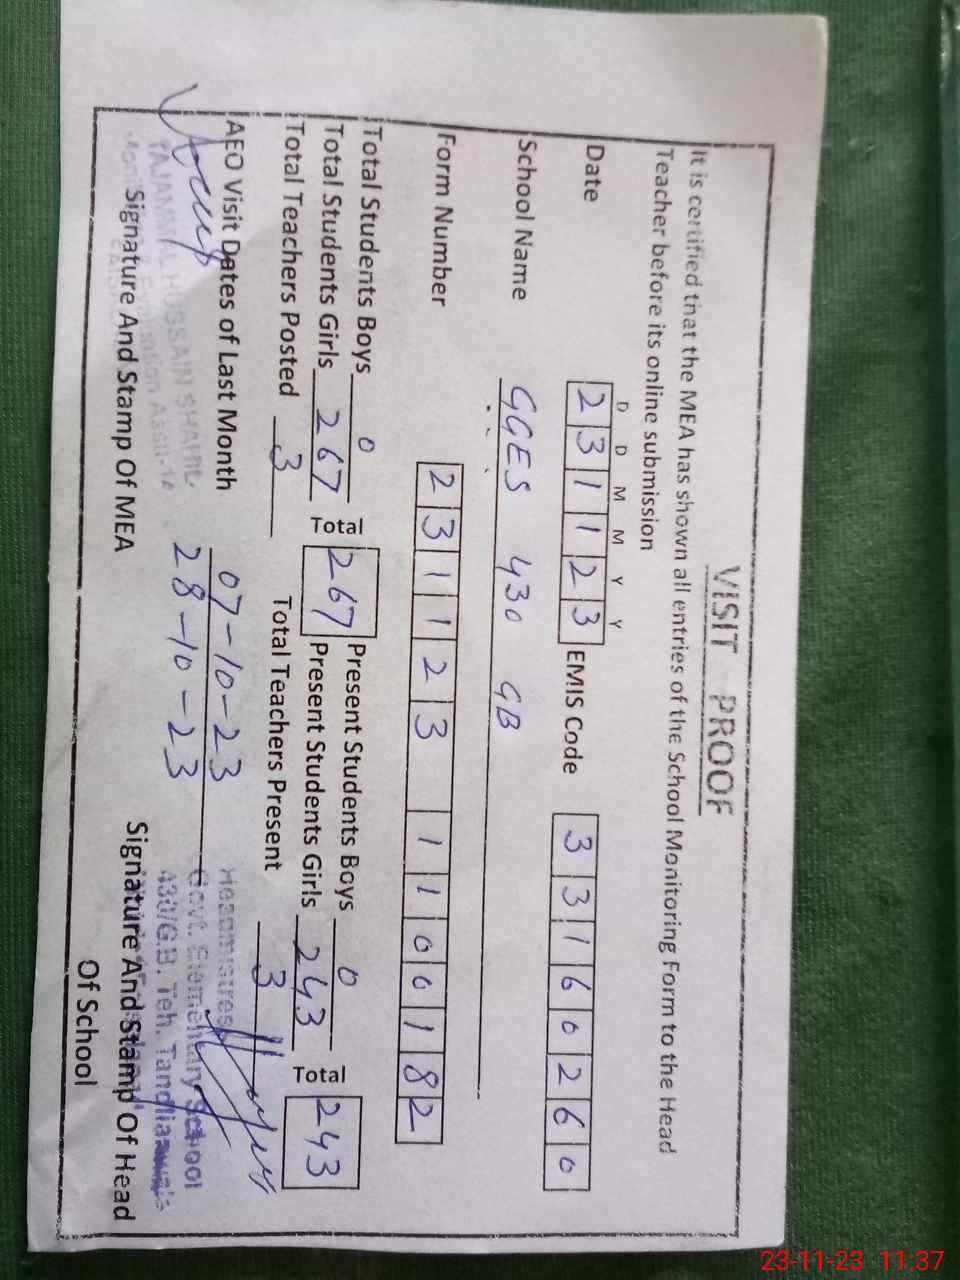 VISIT PROOF
It is certified that the MEA has shown all entries of the School Monitoring Form to the Head
Teacher before its online submission
D D M M Y Y
Date 2 3 1 1 2 3 EMIS Code 3 3 1 6 0 2 6 0
School Name GGES 430 GB
Form Number 2 3 1 1 2 3 1 1 0 0 1 8 2
Total Students Boys 0 Present Students Boys 0
Total 267 Total 243
Total Students Girls 267 Present Students Girls 243
Total Teachers Posted 3 Total Teachers Present 3
AEO Visit Dates of Last Month 07-10-23
28-10-23
TAJAMMAL HUSSAIN
Headmistress
Govt. Elementary School
430/G.B. Teh. Tandlianwala
Signature And Stamp Of MEA Signature And Stamp Of Head
Of School
23-11-23 11:37